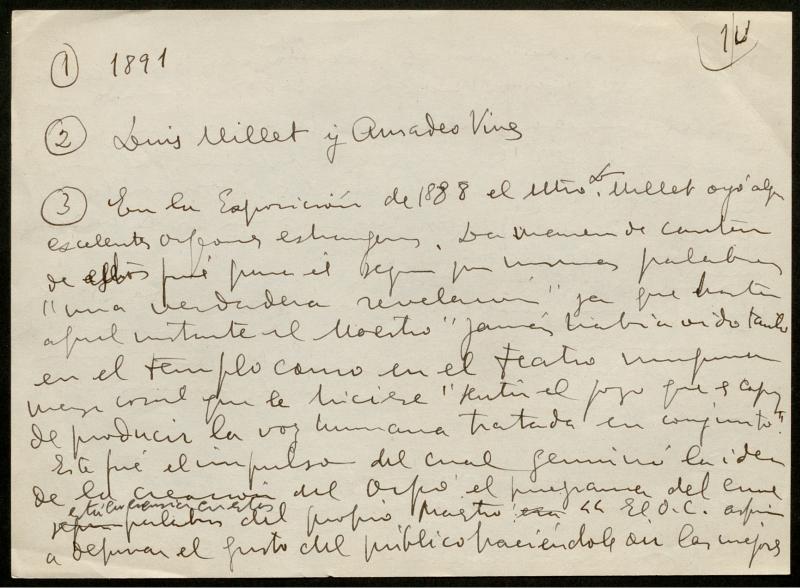 14
① 1891
② Luis Millet y Amadeo Vives
③ En la Exposición de 1888 el Mtro. Millet oyó algu
excelentes orfeones estrangeros. La manera de cantar
de estos fué para él segun sus mismas palabras
"una verdadera revelación" ya que hasta
aquel instante el Maestro "jamás habia oido tanto
en el templo como en el teatro ninguna
masa coral que le hiciese "sentir el gozo que es capaz
de producir la voz humana tratada en conjunto".
Este fué el impulso del cual germinó la idea
de la creación del Orfeó el programa del cual
palabras del propio Maestro "El O.C. aspira
a depurar el gusto del público haciéndole oir las mejores